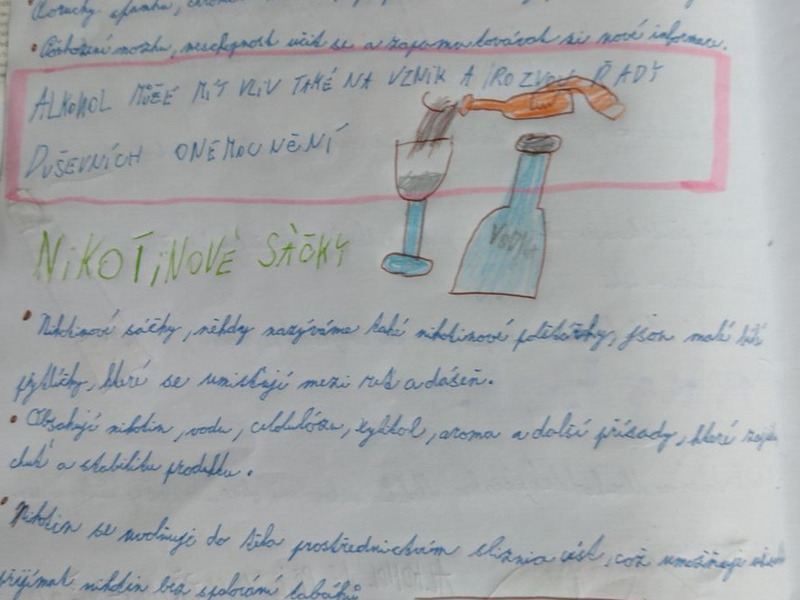 Poruchy spánku,
• Poškození mozku, neschopnost učit se a zapamatovávat si nové informace.
ALKOHOL MŮŽE MÍT VLIV TAKÉ NA VZNIK A ROZVOJ ŘADY
DUŠEVNÍCH ONEMOCNĚNÍ
VODKA
NIKOTINOVÉ SÁČKY
• Nikotinové sáčky, někdy nazýváme také nikotinové polštářky, jsou malé bílé
pytlíčky, které se umisťují mezi ret a dáseň.
• Obsahují nikotin, vodu, celulózu, xylitol, aroma a další přísady, které
chuť a stabilitu produktu.
• Nikotin se uvolňuje do těla prostřednictvím sliznic úst, což umožňuje
přijímat nikotin bez spalování tabáku